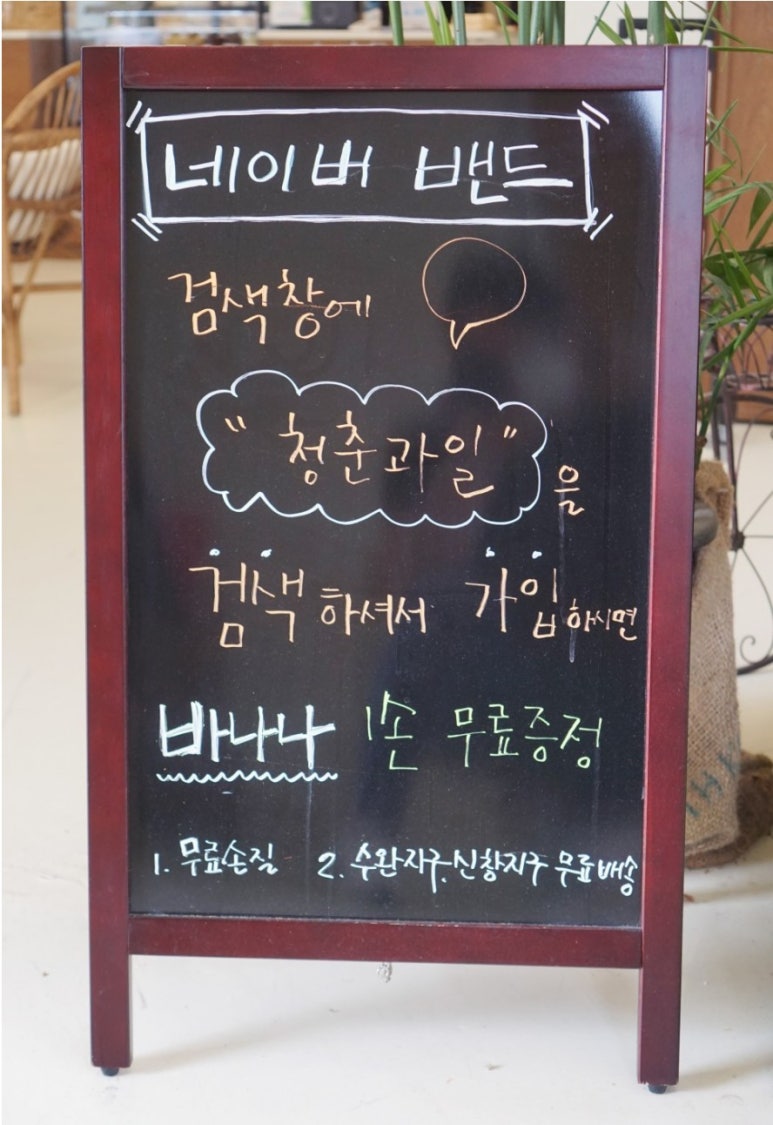 네이버 밴드
검색창에
"청춘과일"을
검색하셔서 가입하시면
바나나 1손 무료증정
1. 무료손질 2. 수완지구, 신창지구 무료배송